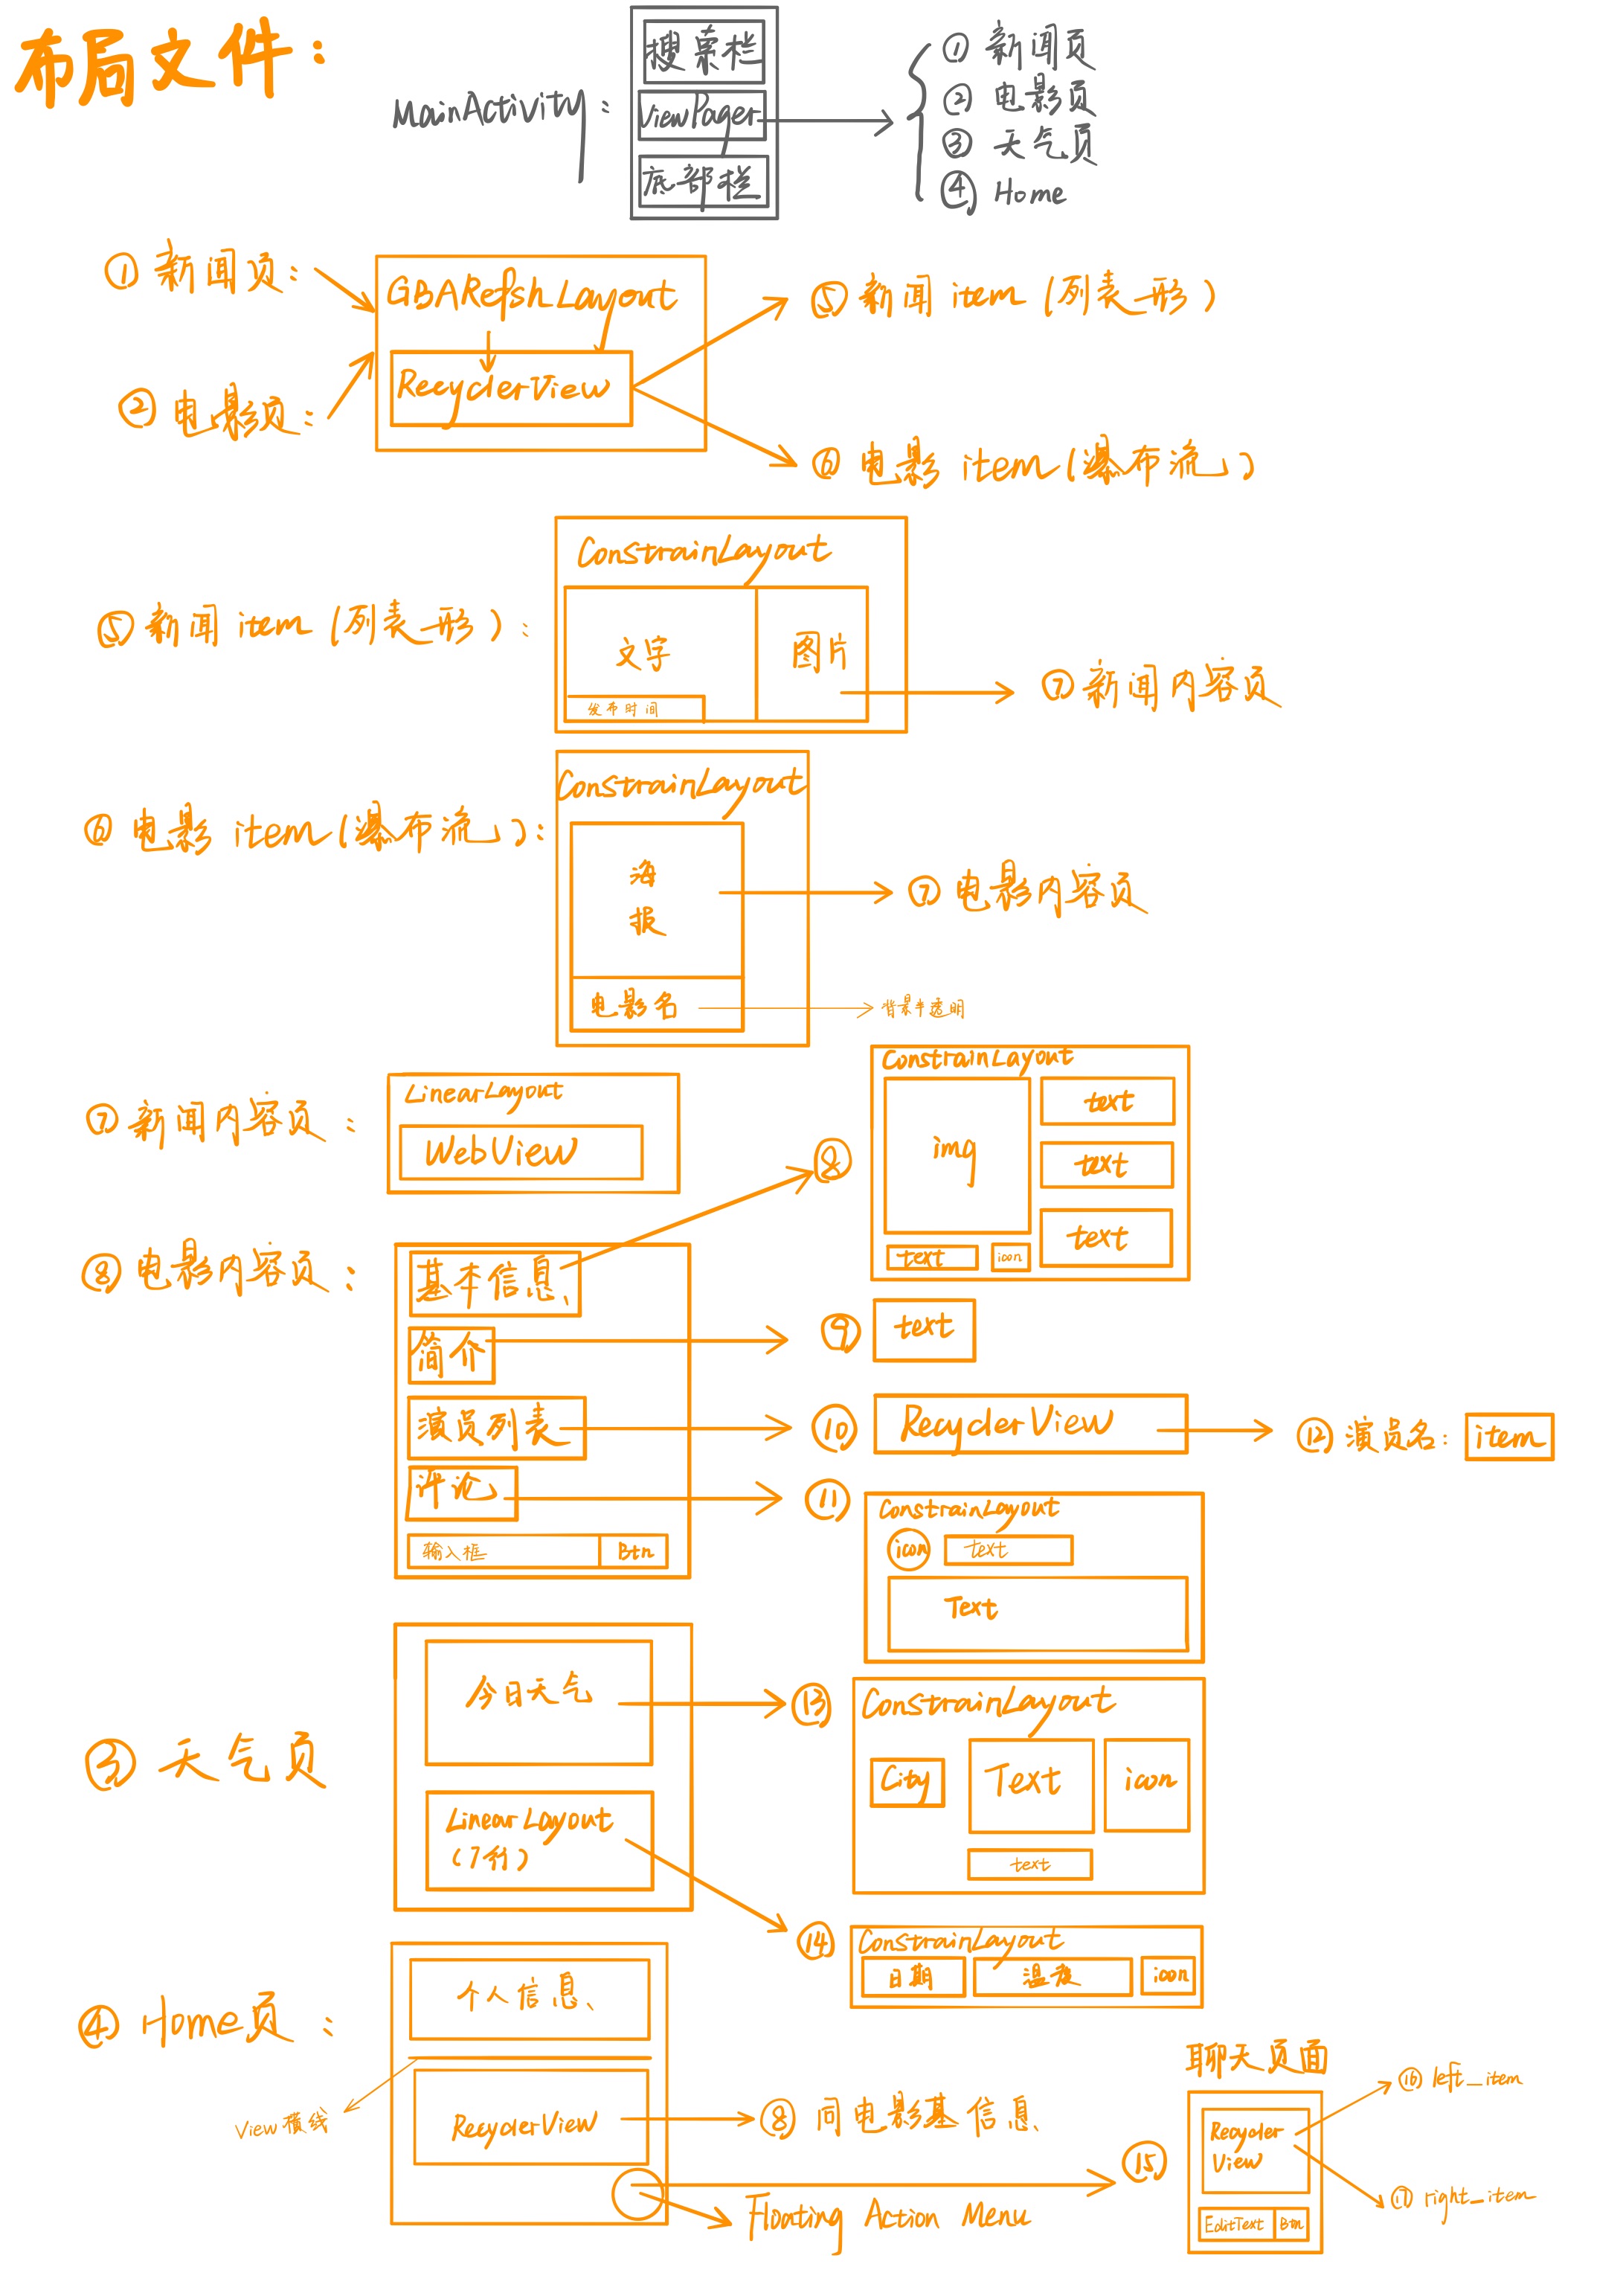 布局文件：
MainActivity：
搜索栏
ViewPager
底部栏
① 新闻页
② 电影页
③ 天气页
④ Home
① 新闻页：
② 电影页：
GBARefshLayout
RecyclerView
⑤ 新闻item（列表形）
⑥ 电影item（瀑布流）
⑤ 新闻item（列表形）：
ConstrainLayout
文字
图片
发布时间
⑦ 新闻内容页
⑥ 电影item（瀑布流）：
ConstrainLayout
海
报
电影名
⑦ 电影内容页
背景半透明
⑦ 新闻内容页：
LinearLayout
WebView
⑧ 电影内容页：
基本信息
简介
演员列表
评论
输入框
Btn
⑧
ConstrainLayout
img
text
text
text
text
icon
⑨
text
⑩
RecyclerView
⑫ 演员名：
item
⑪
ConstrainLayout
icon
text
Text
③ 天气页
今日天气
LinearLayout
（7行）
⑬
ConstrainLayout
City
Text
icon
text
⑭
ConstrainLayout
日期
温度
icon
④ Home页：
个人信息
View横线
RecyclerView
⑧ 同电影基信息
Floating Action Menu
⑮
聊天页面
Recycler
View
EditText
Btn
⑯ left_item
⑰ right_item